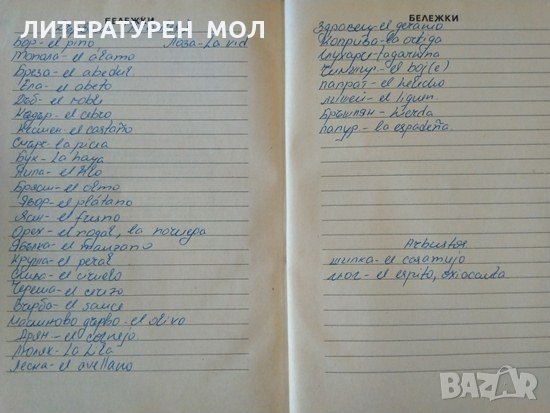 БЕЛЕЖКИ
ЛИТЕРАТУРЕН МОЛ
Бор - el pino Лоза - La vid
Топола - el álamo
Бреза - el abedul
Ела - el abeto
Дъб - el roble
Кедър - el cedro
Кестен - el castaño
Смърч - la picea
Бук - La haya
Липа - el tilo
Бряст - el olmo
Явор - el plátano
Ясен - el fresno
Орех - el nogal, la noguera
Ябълка - el manzano
Круша - el peral
Слива - el ciruelo
Череша - el cerezo
Върба - el sauce
Маслиново дърво - el olivo
Дрян - el cornejo
Люляк - La lila
Леска - el avellano
БЕЛЕЖКИ
Здравец - el geranio
Коприва - la ortiga
Чимшир - el boj(e)
папрат - el helecho
лишей - el liquen
Бръшлян - hiedra
папур - la espadaña
Arbustos
шипка - el escaramujo
глог - el espino, oxiacanta
BAZAR
bg